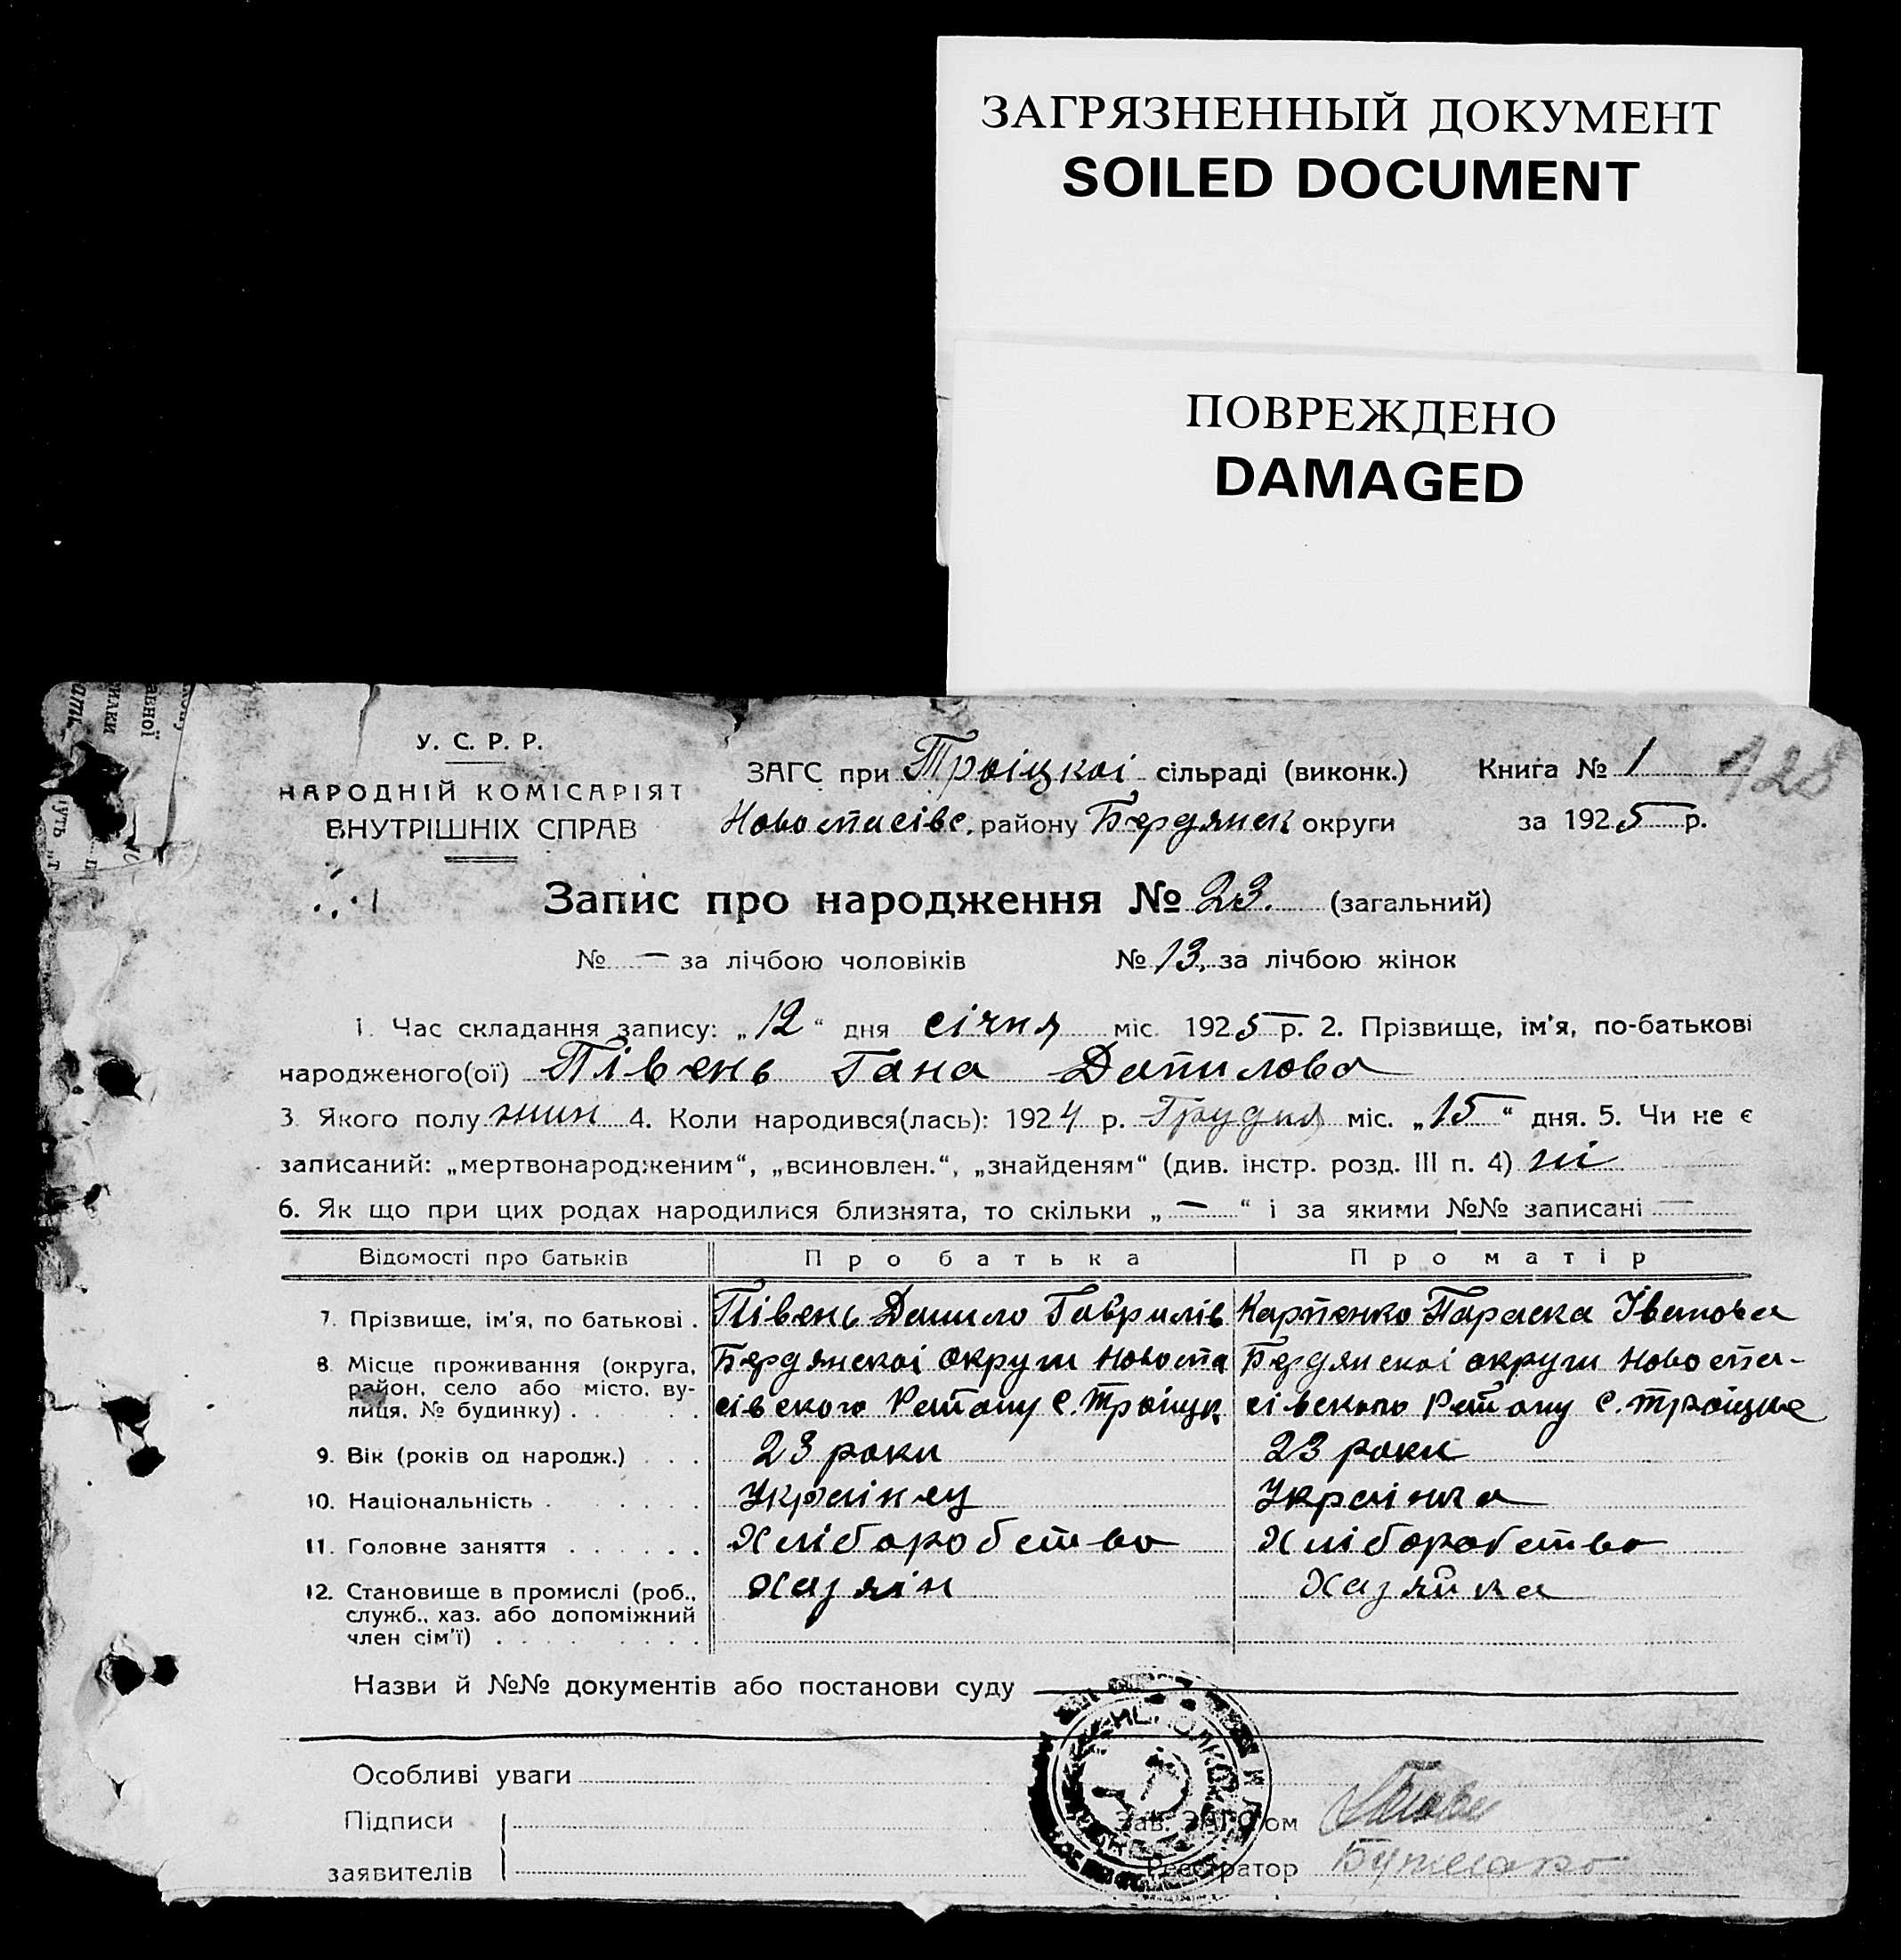 ЗАГРЯЗНЕННЫЙ ДОКУМЕНТ
SOILED DOCUMENT
ПОВРЕЖДЕНО
DAMAGED
У. С. Р. Р.
НАРОДНІЙ КОМІСАРІЯТ
ВНУТРІШНІХ СПРАВ
ЗАГС при Троіцкоі сільраді (виконк.)
Новоспасівс. району Бердянск округи
Книга № 1
128
за 1925 р.
Запис про народження № 23. (загальний)
№ — за лічбою чоловіків № 13, за лічбою жінок
1. Час складання запису: „12“ дня січня міс. 1925 р. 2. Прізвище, ім'я, по-батькові
народженого(ої) Півень Гана Данилова
3. Якого полу жин 4. Коли народився(лась): 1924 р. Грудня міс. „15“ дня. 5. Чи не є
записаний: „мертвонародженим“, „всиновлен.“, „знайденям“ (див. інстр. розд. III п. 4) ні
6. Як що при цих родах народилися близнята, то скільки „—“ і за якими №№ записані —
Відомості про батьків Про батька Про матір
7. Прізвище, ім'я, по батькові . Півень Данило Гаврилів Карпенко Параска Іванова
8. Місце проживання (округа, район, село або місто, вулиця, № будинку) . Бердянскоі округи Новоспа Бердянскоі округи Новоспа-
сівского Раиону С. Троіцк сівского Раиону С. Троіцке
9. Вік (років од народж.) . . . 23 роки 23 роки
10. Національність . Украінец Украінка
11. Головне заняття . Хліборобство Хліборобство
12. Становище в промислі (роб., Хазяін Хазяйка
служб., хаз. або допоміжний
член сім'ї) .
Назви й №№ документів або постанови суду
Особливі уваги
Підписи Зав. ЗАГС'ом
заявителів Реєстратор